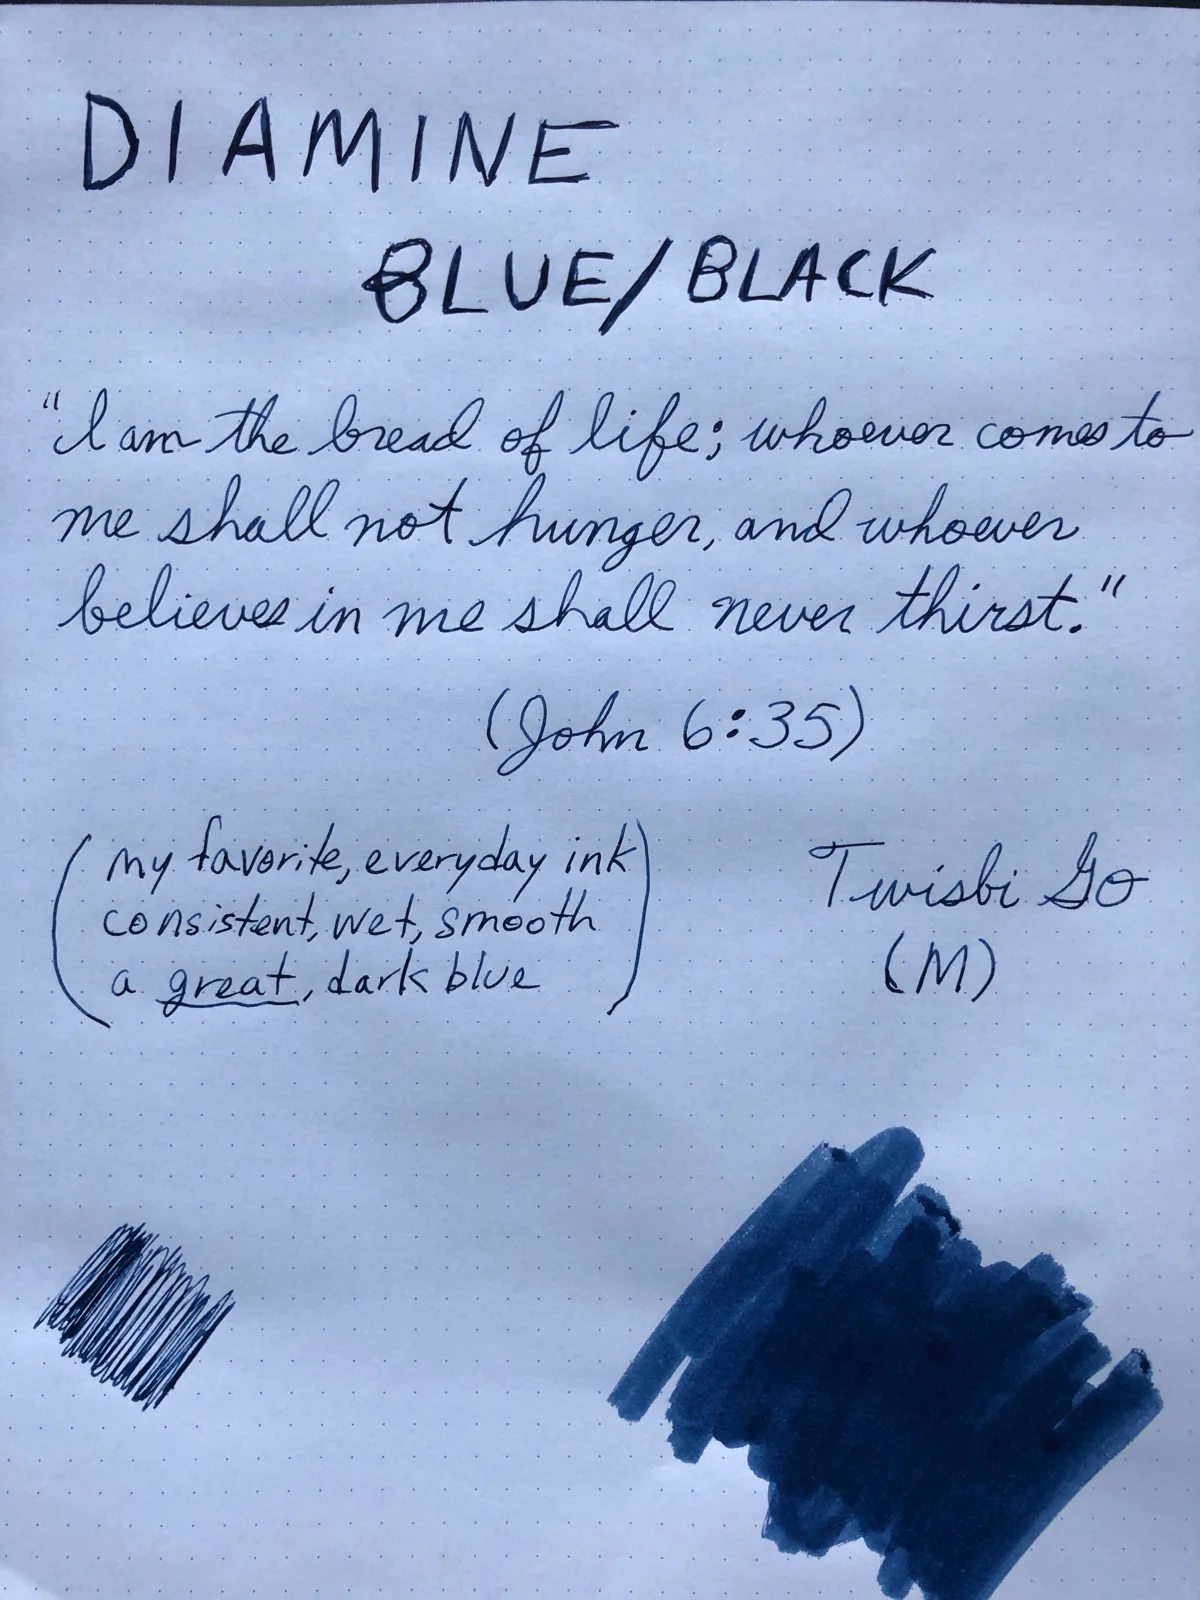 DIAMINE
BLUE/BLACK
"I am the bread of life; whoever comes to
me shall not hunger, and whoever
believes in me shall never thirst."
(John 6:35)
(my favorite, everyday ink
consistent, wet, smooth
a great, dark blue)
Twisbi Go
(M)